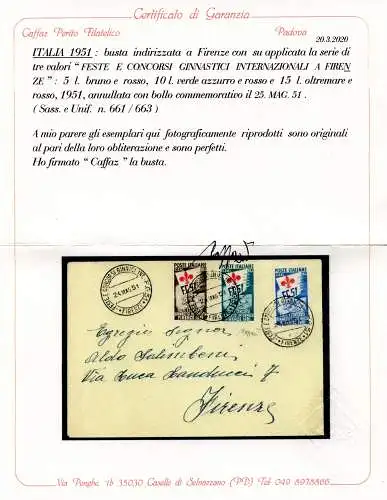 Certificato di Garanzia
Caffaz Perito Filatelico
Padova
20.3.2020
ITALIA 1951 : busta indirizzata a Firenze con su applicata la serie di
tre valori “FESTE E CONCORSI GINNASTICI INTERNAZIONALI A FIREN
ZE” : 5 l. bruno e rosso, 10 l. verde azzurro e rosso e 15 l. oltremare e
rosso, 1951, annullata con bollo commemorativo il 25. MAG. 51 .
( Sass. e Unif. n. 661 / 663 )
A mio parere gli esemplari qui fotograficamente riprodotti sono originali
al pari della loro obliterazione e sono perfetti.
Ho firmato “ Caffaz ” la busta.
Caffaz
POSTE ITALIANE
POSTE ITALIANE
POSTE ITALIANE
24 MAG. 51
FIRENZE
Egregio Signor
Aldo Salimbeni
Via Luca Landucci 7
Firenze
Via Penghe, 1b 35030 Caselle di Selvazzano (PD) Tel. 049 8978866